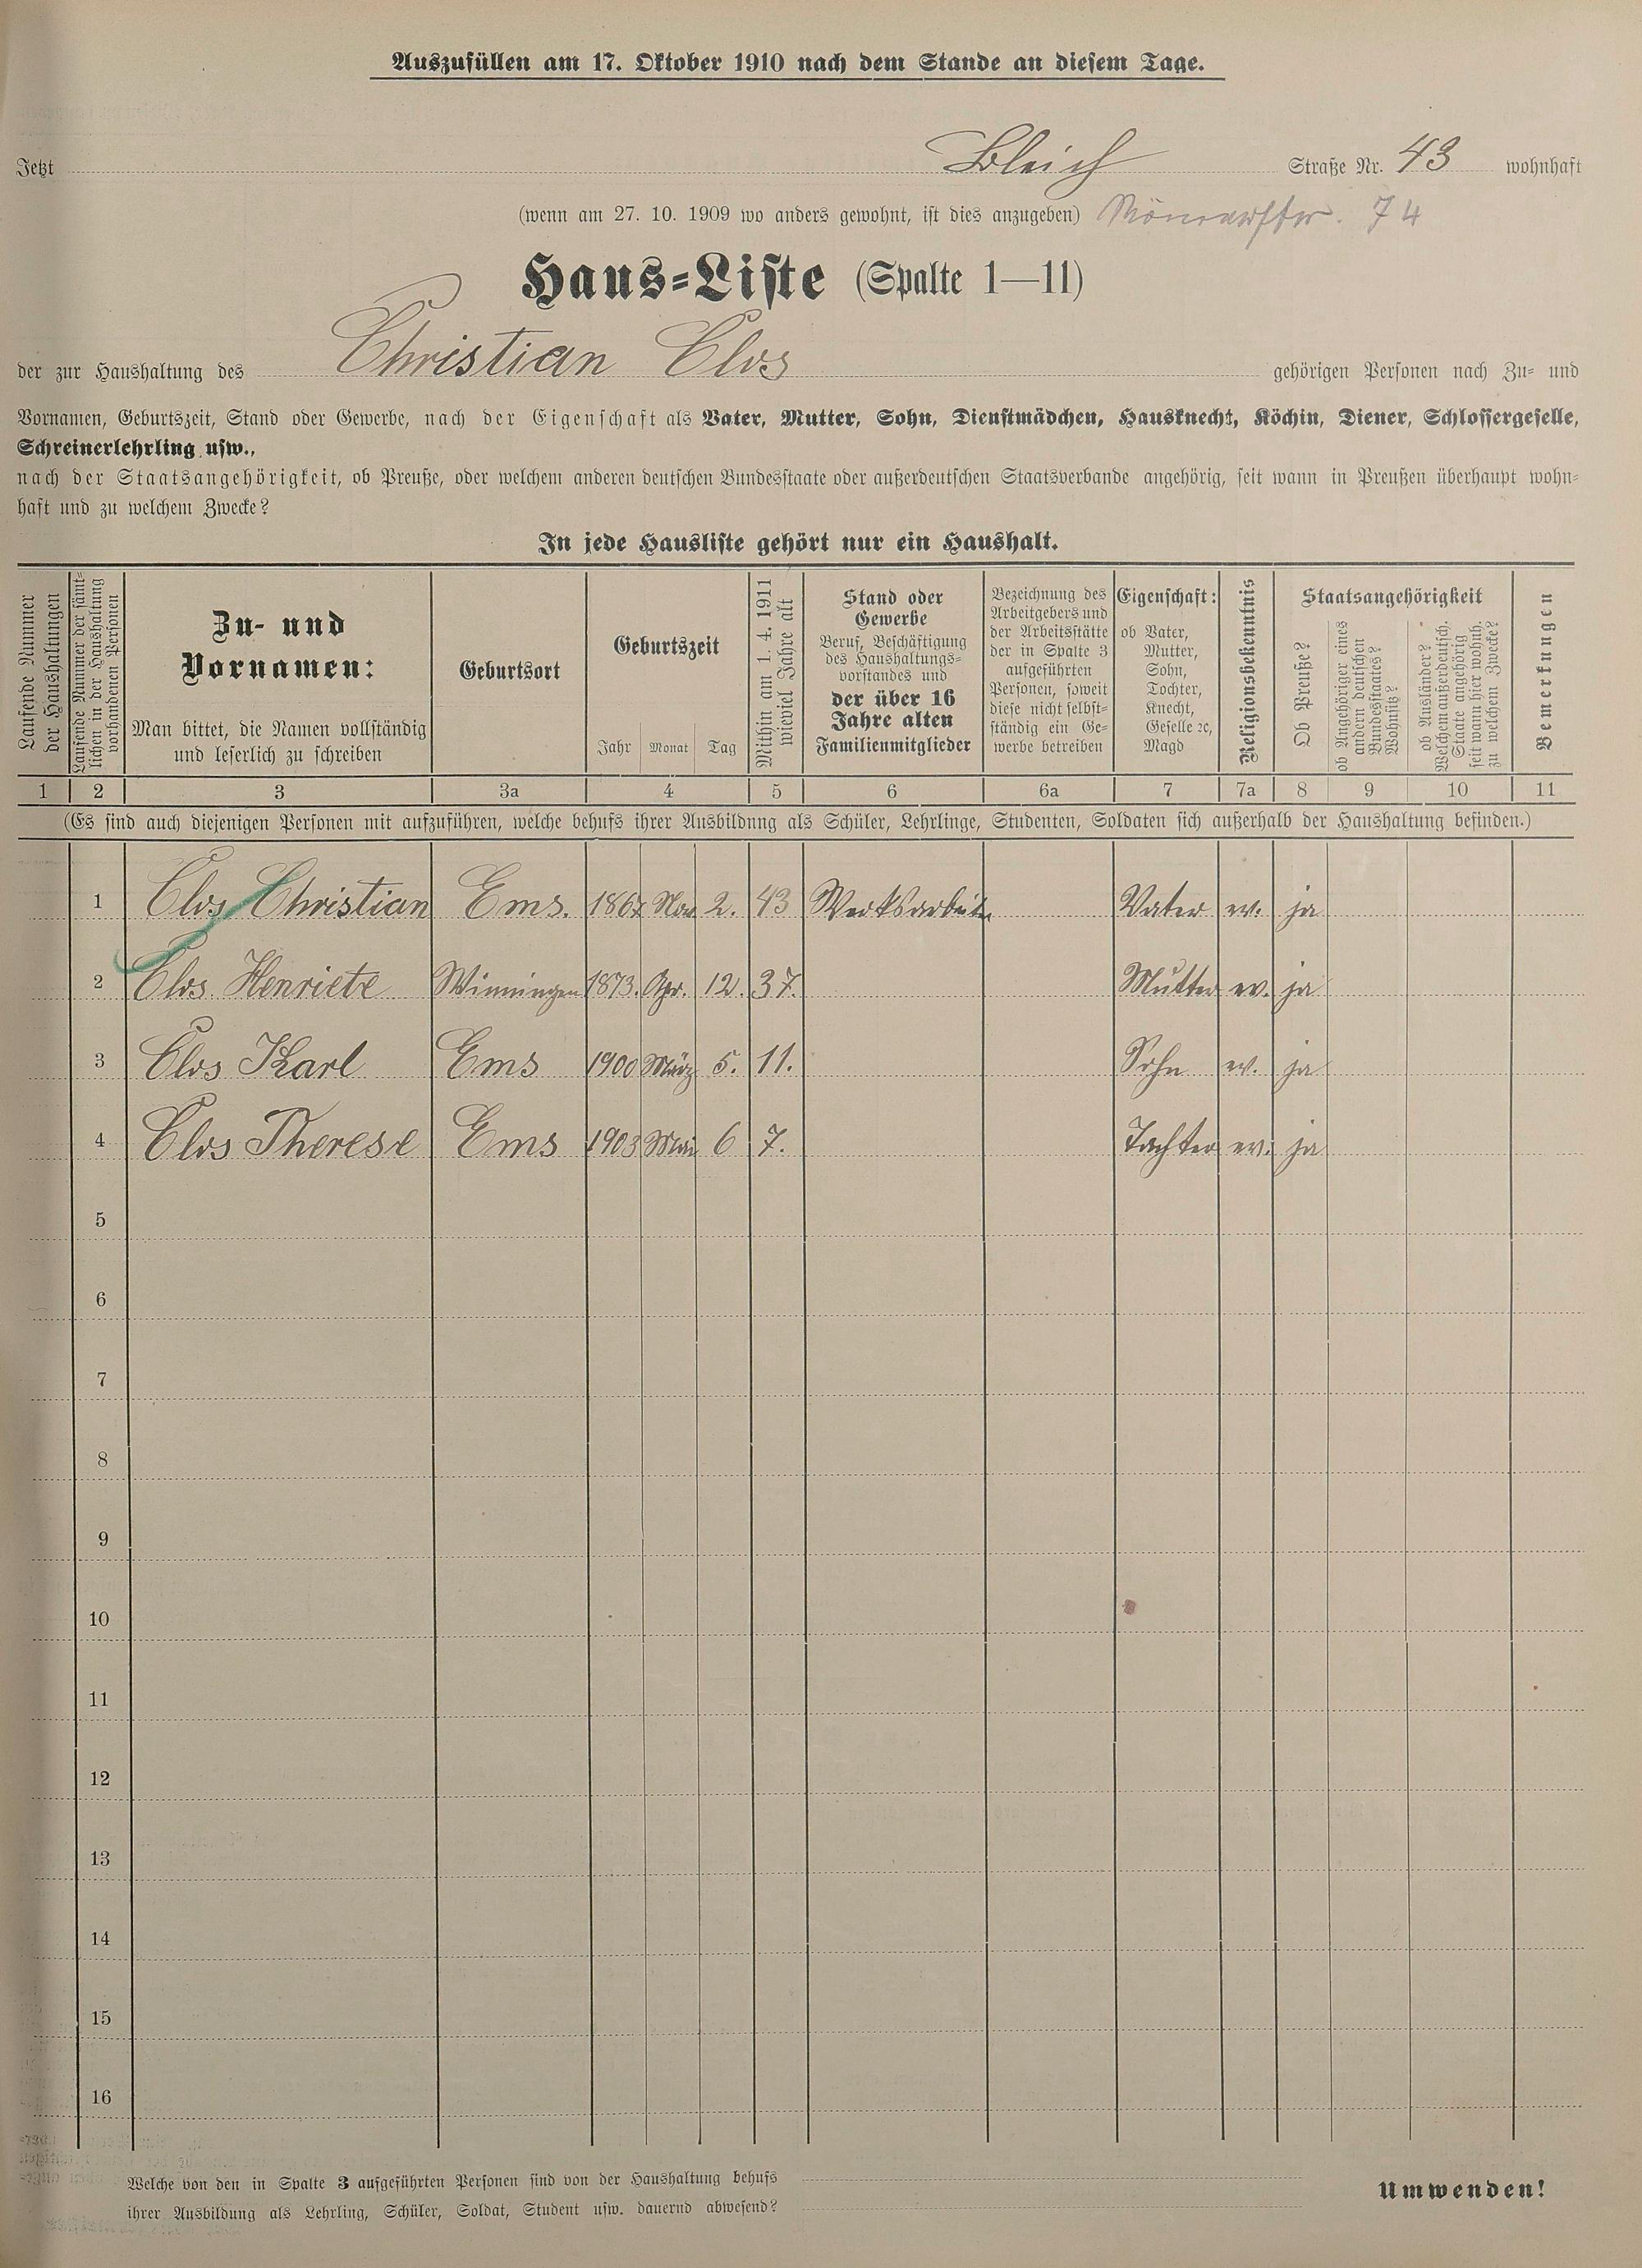 Auszufüllen am 17. Oktober 1910 nach dem Stande an diesem Tage.
Jetzt Bleich Straße Nr. 43 wohnhaft
(wenn am 27. 10. 1909 wo anders gewohnt, ist dies anzugeben) 74
Haus-Liste (Spalte 1—11)
der zur Haushaltung des Christian Clos gehörigen Personen nach Zu- und
Vornamen, Geburtszeit, Stand oder Gewerbe, nach der Eigenschaft als Vater, Mutter, Sohn, Dienstmädchen, Hausknecht, Köchin, Diener, Schlossergeselle,
Schreinerlehrling usw.,
nach der Staatsangehörigkeit, ob Preuße, oder welchem anderen deutschen Bundesstaate oder außerdeutschen Staatsverbande angehörig, seit wann in Preußen überhaupt wohn-
haft und zu welchem Zwecke?
In jede Hausliste gehört nur ein Haushalt.
Laufende Nummer
der Haushaltungen
Laufende Nummer der sämt-
lichen in der Haushaltung
vorhandenen Personen
Zu- und
Vornamen:
Man bittet, die Namen vollständig
und leserlich zu schreiben
Geburtsort
Geburtszeit
Jahr Monat Tag
Mithin am 1. 4. 1911
wieviel Jahre alt
Stand oder
Gewerbe
Beruf, Beschäftigung
des Haushaltungs-
vorstandes und
der über 16
Jahre alten
Familienmitglieder
Bezeichnung des
Arbeitgebers und
der Arbeitsstätte
der in Spalte 3
aufgeführten
Personen, soweit
diese nicht selbst-
ständig ein Ge-
werbe betreiben
Eigenschaft:
ob Vater,
Mutter,
Sohn,
Tochter,
Knecht,
Geselle ꝛc,
Magd
Religionsbekenntnis
Staatsangehörigkeit
Ob Preuße?
ob Angehöriger eines
andern deutschen
Bundesstaates?
Wohnsitz?
ob Ausländer?
Welchem außerdeutsch.
Staate angehörig
seit wann hier wohnh.
zu welchem Zwecke?
Bemerkungen
1 2 3 3a 4 5 6 6a 7 7a 8 9 10 11
(Es sind auch diejenigen Personen mit aufzuführen, welche behufs ihrer Ausbildung als Schüler, Lehrlinge, Studenten, Soldaten sich außerhalb der Haushaltung befinden.)
1 Clos Christian Ems. 1867 Nov 2. 43 Werksarbeiter Vater ev. ja
2 Clos Henriete Winningen 1873. Apr. 12. 37. Mutter ev. ja
3 Clos Karl Ems 1900 März 5. 11. Sohn ev. ja
4 Clos Therese Ems 1903 Mai 6 7. Tochter ev. ja
5
6
7
8
9
10
11
12
13
14
15
16
Welche von den in Spalte 3 aufgeführten Personen sind von der Haushaltung behufs
ihrer Ausbildung als Lehrling, Schüler, Soldat, Student usw. dauernd abwesend?
Umwenden!